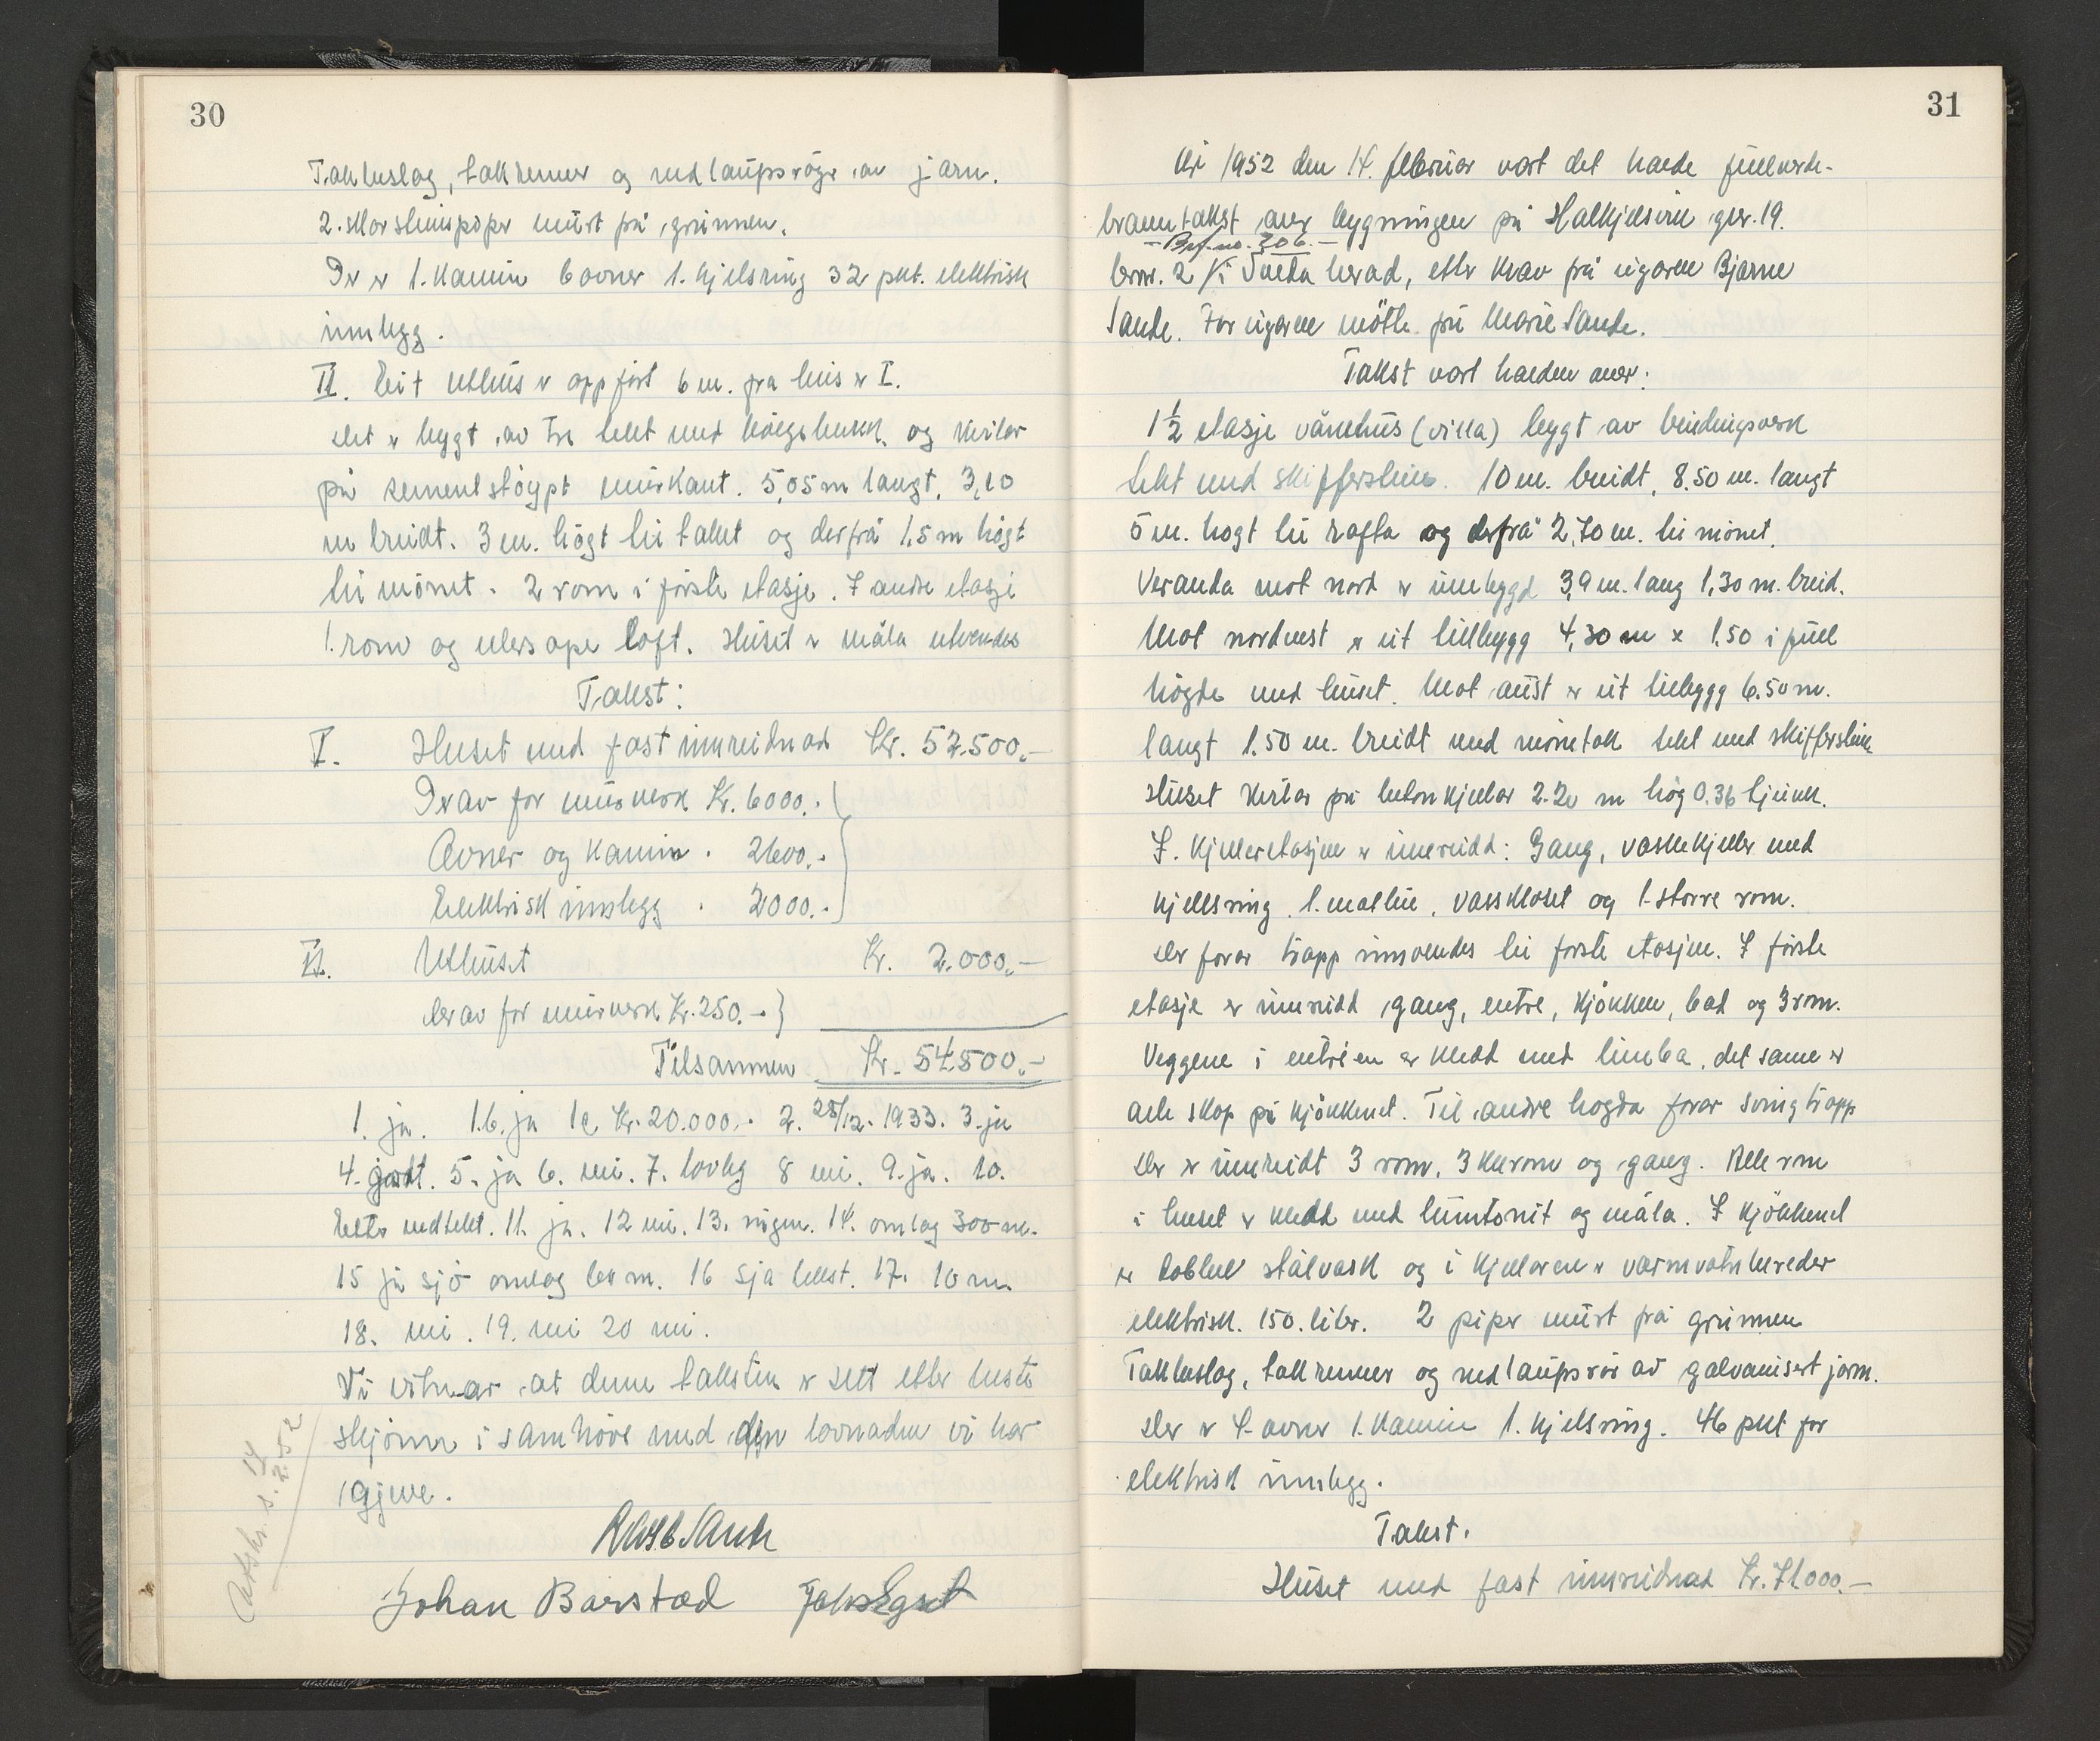 30
Takbeslag, takrenner og nedlaupsrøyr av jarn.
2. skorsteinspiper murt frå grunnen.
Der er 1. kamin 6 ovner 1. kjelsring 32 pkt. elektrisk
innlegg.
II. Eit uthus er oppført 6 m. fra hus nr I.
Det er bygt av tre tekt med bølgeblekk og kviler
på sementstøypt murkant. 5,05 m langt, 3,10
m breidt. 3 m. høgt til taket og derfrå 1,5 m høgt
til mønet. 2 rom i første etasje. I andre etasje
1. rom og ellers ope loft. Huset er måla utvendes
Takst:
I. Huset med fast innreidnad Kr. 52.500,-
Derav for murverk Kr. 6000.-
Ovner og kamin. 2600.-
Elektrisk innlegg. 2000.-
II. Uthuset Kr. 2.000,-
derav for murverk Kr. 250.-
Tilsammen Kr. 54.500,-
1. ja. 1b. ja 1c Kr. 20.000.- 2. 28/12. 1933. 3. ja
4. godt. 5. ja 6. nei. 7. lovleg 8 nei. 9. ja. 10.
Etter vedtekt. 11. ja. 12 nei. 13. ingen. 14. omlag 300 m.
15 ja sjø omlag m. 16 sjå tekst. 17. 10 m.
18. nei. 19. nei 20 nei.
Vi vitnar at denne taksten er sett etter beste
skjønn i samhøve med den lovnaden vi har
gjeve.
Sande
Johan Barstad
Avskr. s. 14/2.52
31
År 1952 den 14. februar vart det halde fullverde-
branntakst over bygningen på Halkjelsvik gnr. 19.
- Brf. no. 306. -
bnr. 2 i Volda herad, etter krav frå eigaren Bjarne
Sande. For eigaren møtte frå Marie Sande.
Takst vart halden over:
1 1/2 etasje vånehus (villa) bygt av bindingsverk
tekt med skifferstein. 10 m. breidt, 8.50 m. langt
5 m. høgt til rafta og derfrå 2,70 m. til mønet.
Veranda mot nord er innbygd 3,9 m. lang 1,30 m. breid.
Mot nordvest er eit tilbygg 4,30 m x 1.50 i full
høgde med huset. Mot aust er eit tilbygg 6.50 m.
langt 1.50 m. breidt med mønetak tekt med skifferstein
Huset kviler på betonkjellar 2.20 m høg 0.36 tjukk.
I. kjelleretasjen er innreidd: Gang, vaskekjeller med
kjelsring, 1. matbu, vassklosett og 1. større rom.
Der forar trapp innvendes til første etasjen. I første
etasje er innreidd gang, entre, kjøkken, bad og 3 rom.
Veggene i entreen er kledd med limba, det same er
alle skap på kjøkkenet. Til andre høgda forar svingtrapp
Der er innreidt 3 rom, 3 klerom og gang. Alle rom
i huset er kledd med huntonit og måla. I kjøkkenet
er dobbel stålvask og i kjellaren er varmvatnbereder
elektrisk. 150. liter. 2 piper murt frå grunnen
Takbeslag, takrenner og nedlaupsrør av galvanisert jarn.
Der er 4. ovner 1. kamin 1. kjelsring. 46 pkt for
elektrisk innlegg.
Takst.
Huset med fast innreidnad Kr. 71.000.-